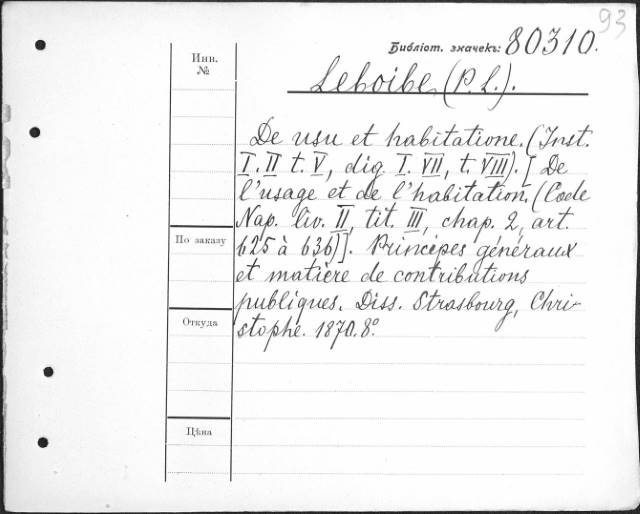 93
Библіот. значекъ: 80310.
Инв.
№
Leboibe (P. L.).
De usu et habitatione. (Inst.
I. II t. V, dig. I. VII, t. VIII). [De
l'usage et de l'habitation. (Code
Nap. liv. II, tit. III, chap. 2, art.
625 à 636)]. Principes généraux
et matière de contributions
publiques. Diss. Strasbourg, Chri-
stophe. 1870. 8º
По заказу
Откуда
Цѣна